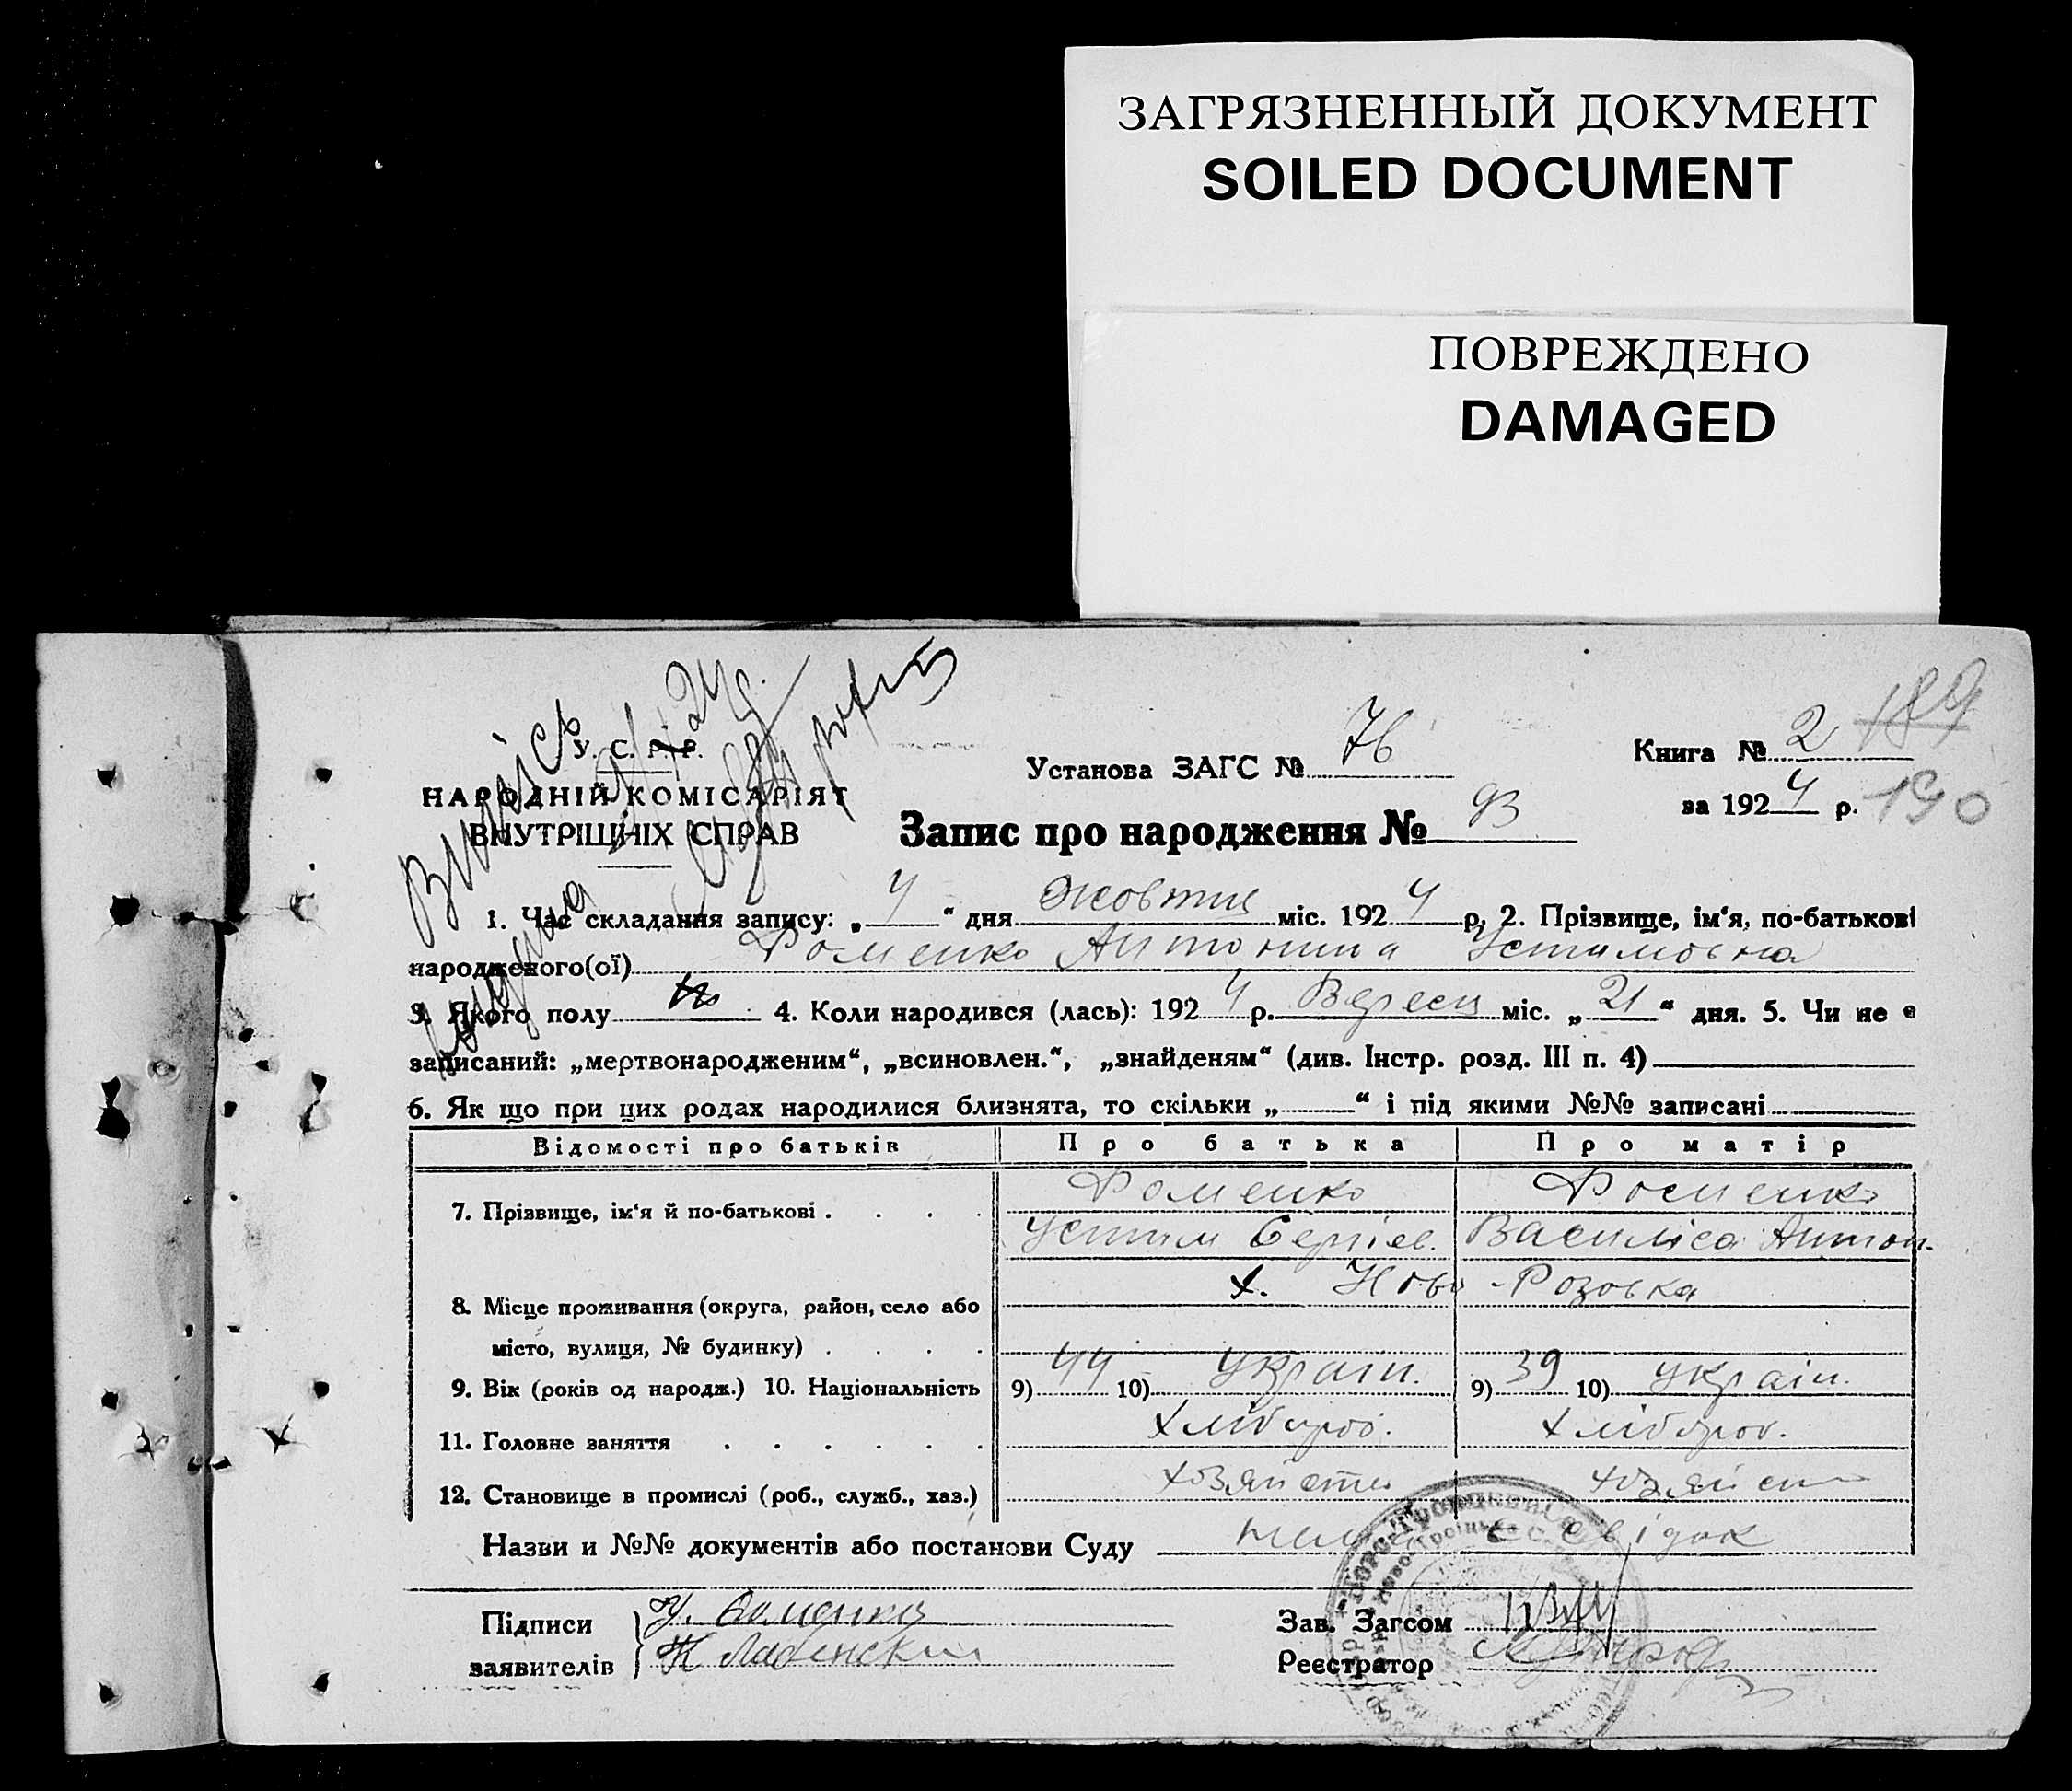 ЗАГРЯЗНЕННЫЙ ДОКУМЕНТ
SOILED DOCUMENT
ПОВРЕЖДЕНО
DAMAGED
Випись
У. С. Р. Р.
НАРОДНІЙ КОМІСАРІЯТ
ВНУТРІШНІХ СПРАВ
Установа ЗАГС № 76
Книга № 2 189
за 1924 р. 190
Запис про народження № 93
1. Час складання запису: „4“ дня Жовтня міс. 1924 р. 2. Прізвище, ім‘я, по-батькові
народженого(ої) Фоменко Антонина Устимовна
3. Якого полу 4. Коли народився (лась): 1924 р. Вересн міс. „21“ дня. 5. Чи не є
записаний: „мертвонародженим“, „всиновлен.“, „знайденям“ (див. Інстр. розд. III п. 4)
6. Як що при цих родах народилися близнята, то скільки „ “ і під якими №№ записані
Відомості про батьків Про батька Про матір
7. Прізвище, ім‘я й по-батькові . . . . Фоменко Фоменко
Устим Сергіев. Василіса Антон.
8. Місце проживання (округа, район, село або х. Ново-Розовка
місто, вулиця, № будинку) . . . .
9. Вік (років од народж.) 10. Національність 9) 44 10) Україн. 9) 39 10) Україн.
11. Головне заняття . . . . . . Хлібороб. Хлібороб.
12. Становище в промислі (роб., служб., хаз.)
Назви и №№ документів або постанови Суду свідок
Підписи У. Фоменко
заявителів
Зав. Загсом
Реєстратор